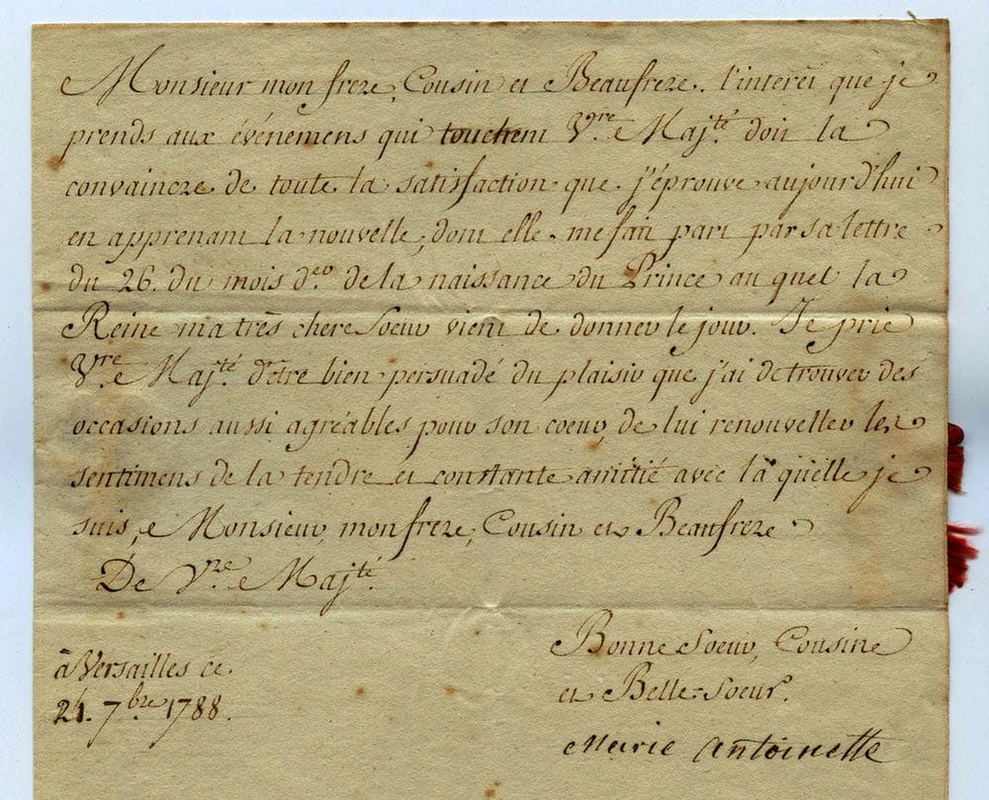 Monsieur mon frere, Cousin et Beaufrere. l'interêt que je
prends aux événemens qui touchent V.re Maj.té doit la
convaincre de toute la satisfaction que j'éprouve aujourd'hui
en apprenant la nouvelle, dont elle me fait part par sa lettre
du 26. du mois d.er de la naissance du Prince au quel la
Reine ma très chere Soeur vient de donner le jour. Je prie
V.re Maj.té d'être bien persuadé du plaisir que j'ai de trouver des
occasions aussi agréables pour son coeur, de lui renouveller les
sentimens de la tendre et constante amitié avec la quelle je
suis, Monsieur mon frere, Cousin et Beaufrere
De V.re Maj.té
Bonne Soeur, Cousine
et Belle-Soeur.
à Versailles ce
7.bre 1788.
Marie Antoinette